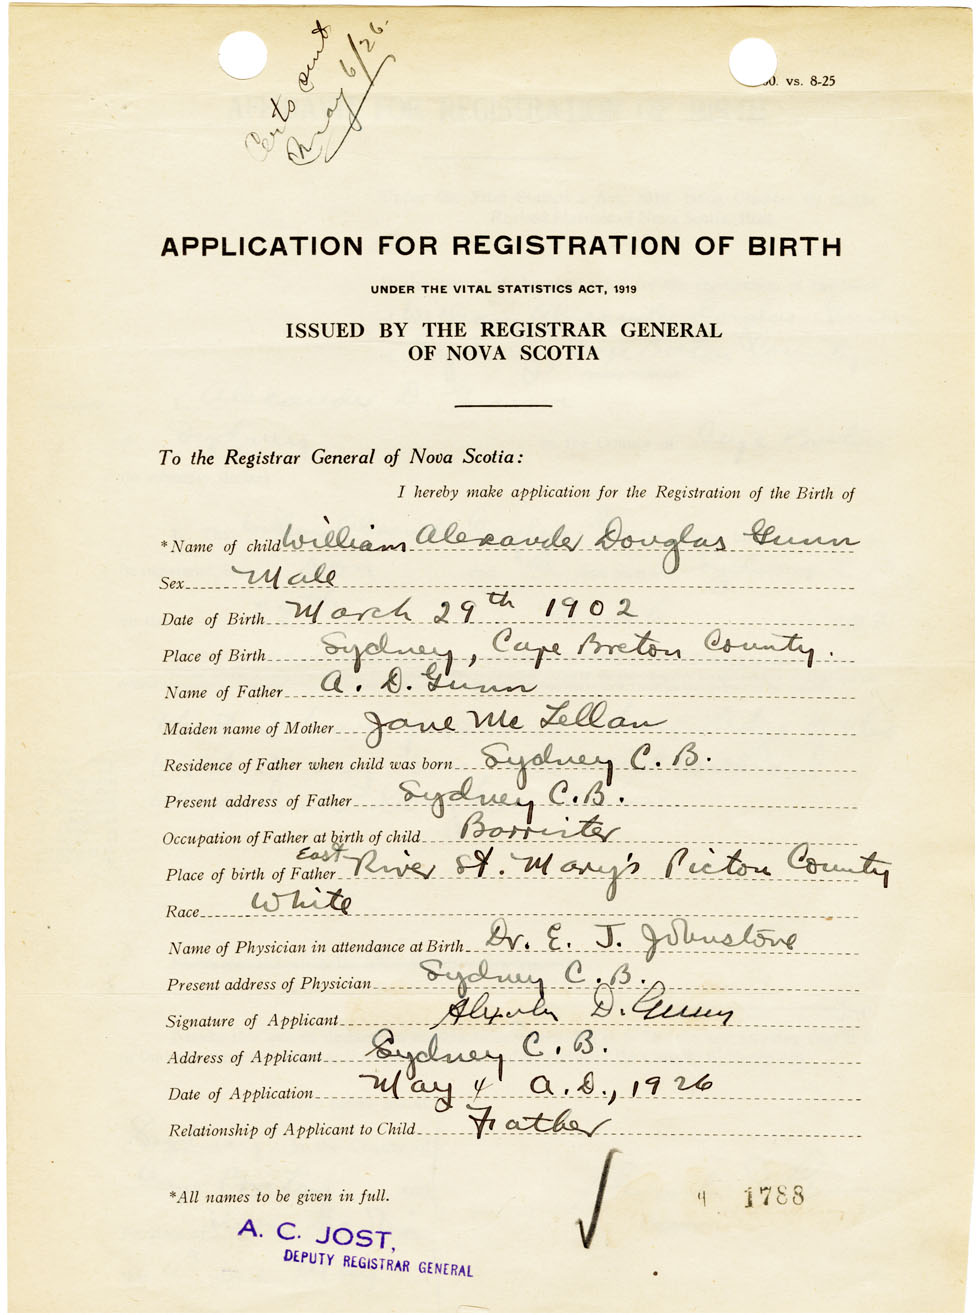 Certs sent
May 6/26.
00. vs. 8-25
APPLICATION FOR REGISTRATION OF BIRTH
UNDER THE VITAL STATISTICS ACT, 1919
ISSUED BY THE REGISTRAR GENERAL
OF NOVA SCOTIA
To the Registrar General of Nova Scotia:
I hereby make application for the Registration of the Birth of
*Name of child William Alexander Douglas Gunn
Sex Male
Date of Birth March 29th 1902
Place of Birth Sydney, Cape Breton County.
Name of Father A. D. Gunn
Maiden name of Mother Jane McLellan
Residence of Father when child was born Sydney C. B.
Present address of Father Sydney C.B.
Occupation of Father at birth of child Barrister
Place of birth of Father East River St. Mary's Pictou County
Race White
Name of Physician in attendance at Birth Dr. E. J. Johnstone
Present address of Physician Sydney C. B.
Signature of Applicant Alexander D. Gunn
Address of Applicant Sydney C. B.
Date of Application May 4 A.D., 1926
Relationship of Applicant to Child Father
*All names to be given in full.
1788
A. C. JOST,
DEPUTY REGISTRAR GENERAL